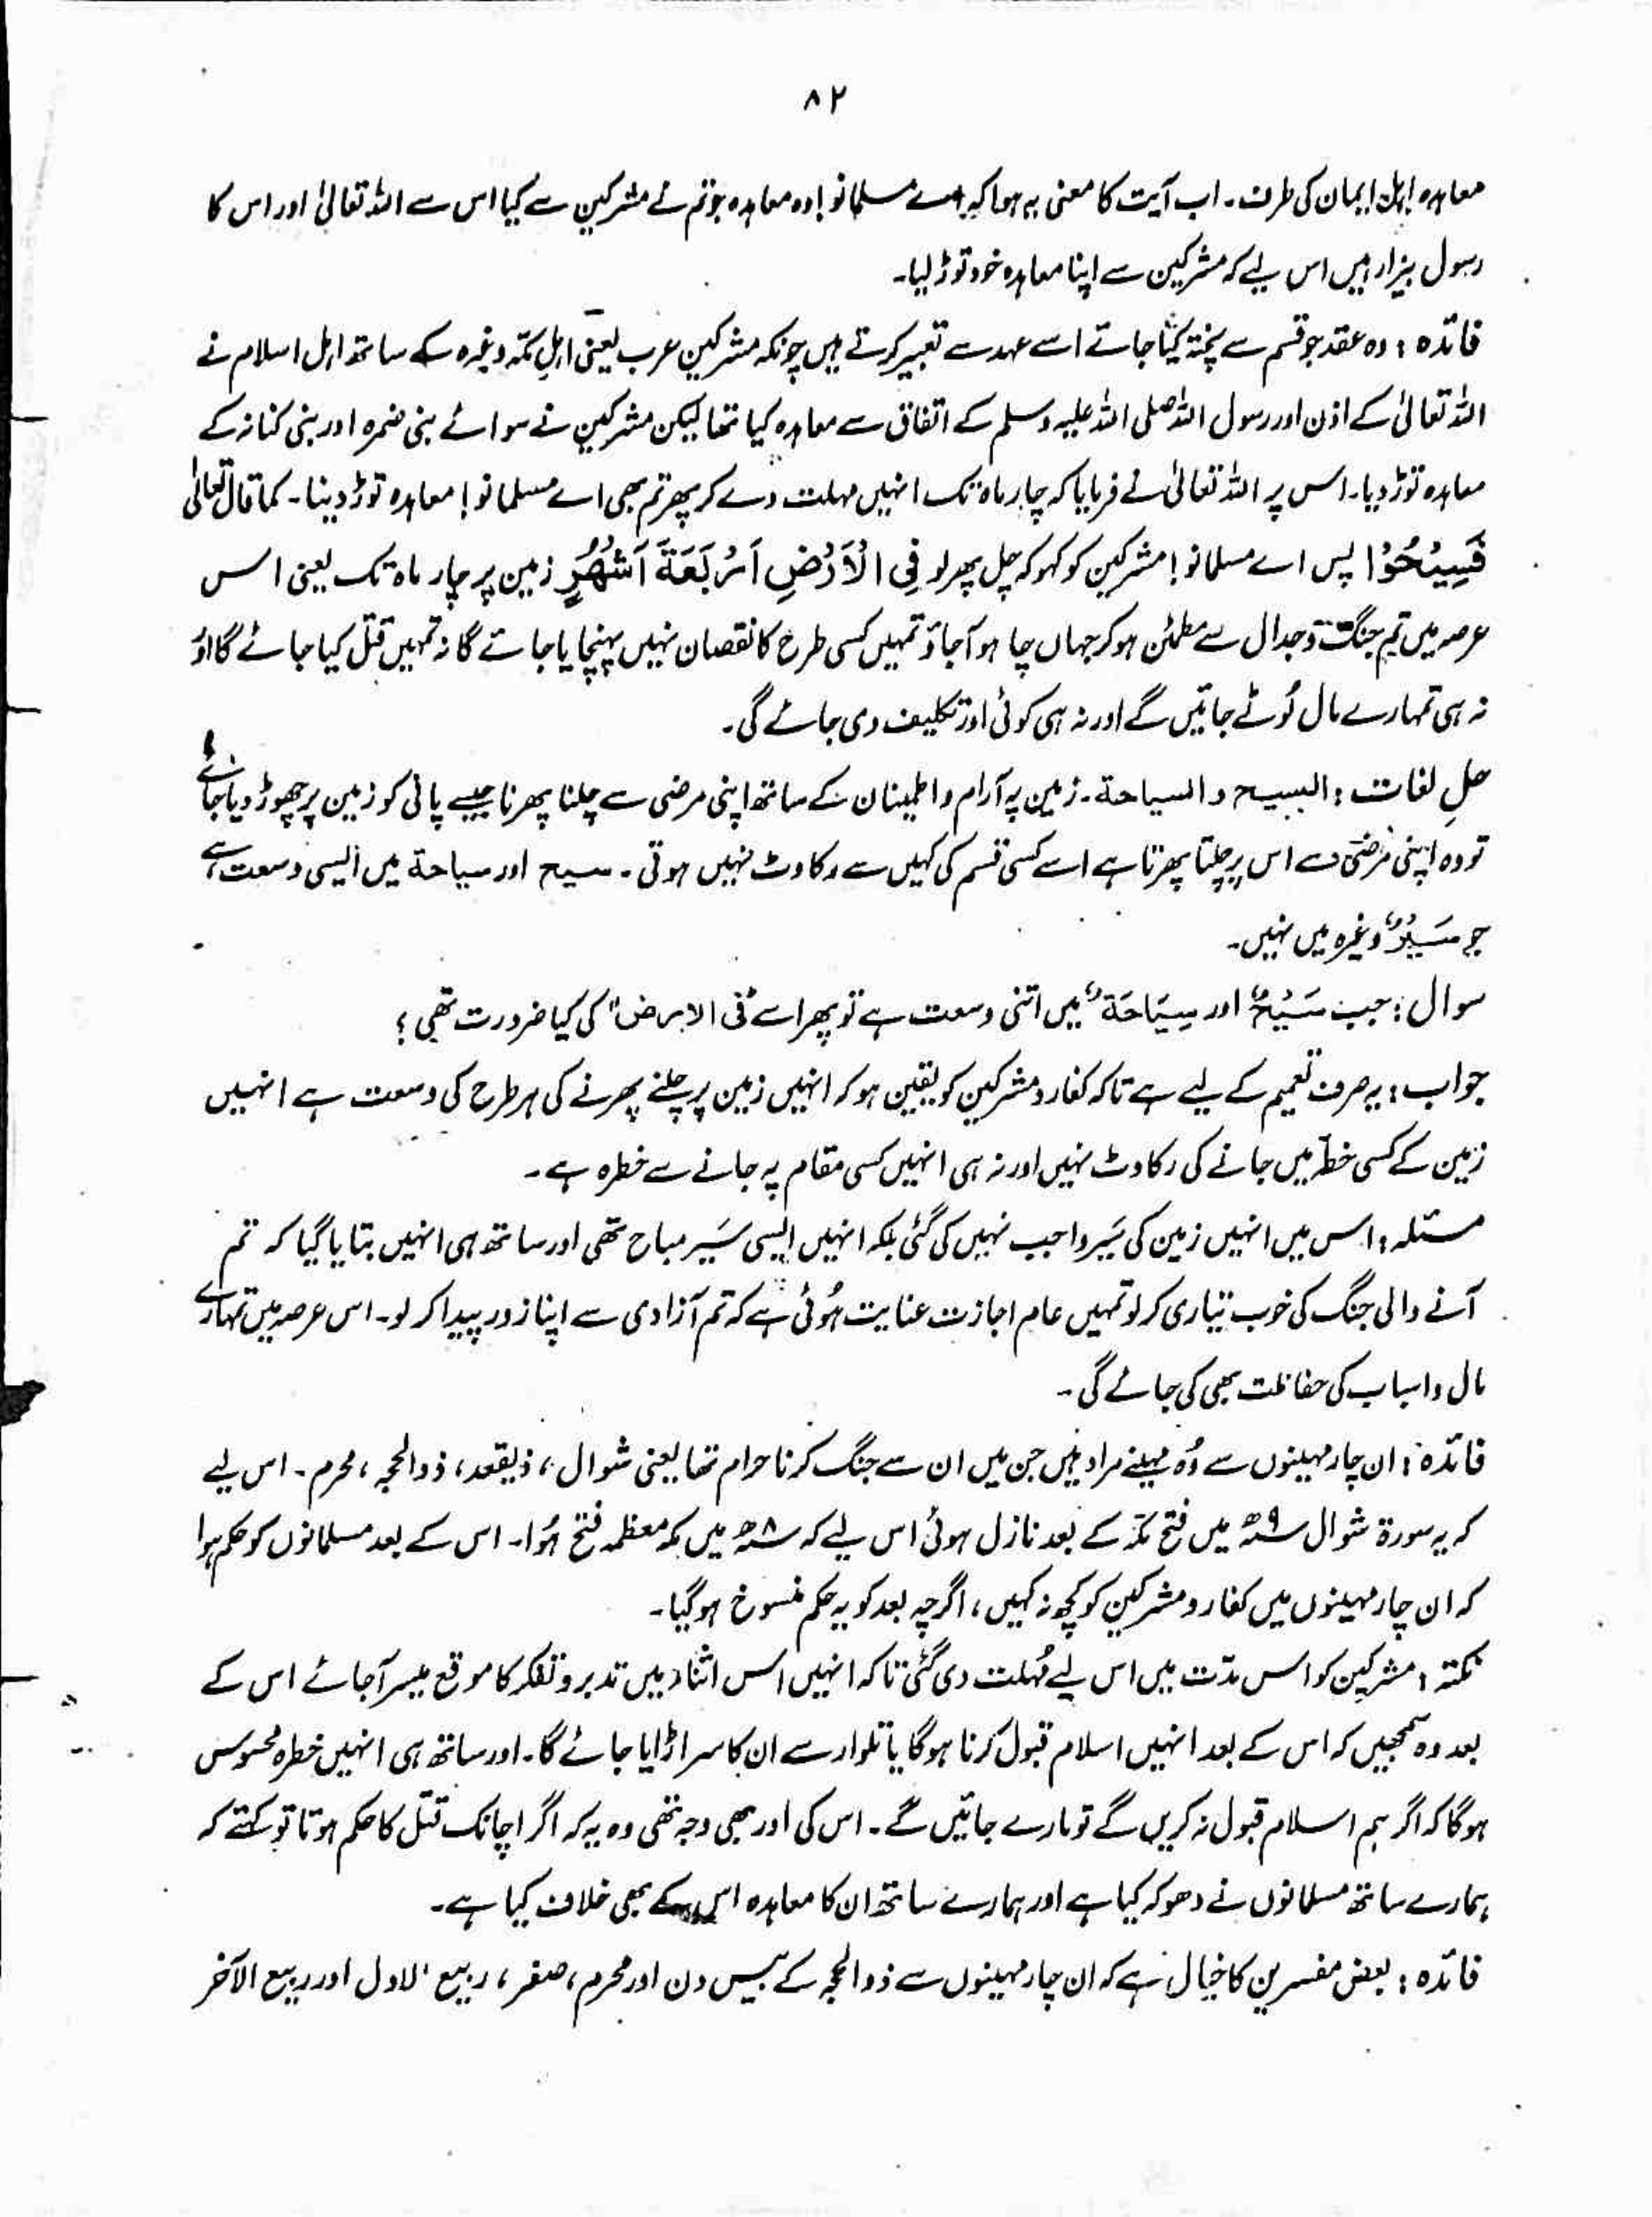 ۸۲
معاہدہ اہل ایمان کی طرف۔ اب آیت کا معنی یہ ہوا کہ اے مسلمانو! وہ معاہدہ جو تم نے مشرکین سے کیا اس سے اللہ تعالیٰ اور اس کا
رسول بیزار ہیں اس لیے کہ مشرکین سے اپنا معاہدہ خود توڑ لیا۔
فائدہ : وہ عقد جو قسم سے پختہ کیا جائے اسے عہد سے تعبیر کرتے ہیں چونکہ مشرکین عرب یعنی اہلِ مکّہ وغیرہ کے ساتھ اہل اسلام نے
اللہ تعالیٰ کے اذن اور رسول اللہ صلی اللہ علیہ وسلم کے اتفاق سے معاہدہ کیا تھا لیکن مشرکین نے سوائے بنی ضمرہ اور بنی کنانہ کے
معاہدہ توڑ دیا۔ اس پر اللہ تعالیٰ نے فرمایا کہ چار ماہ تک انہیں مہلت دے کر پھر تم بھی اے مسلمانو! معاہدہ توڑ دینا۔ کما قال تعالیٰ
فَسِیْحُوْا پس اے مسلمانو! مشرکین کو کہو کہ چل پھر لو فِی الْاَرْضِ اَرْبَعَۃَ اَشْھُرٍ زمین پر چار ماہ تک یعنی اس
عرصہ میں تم جنگ و جدال سے مطمئن ہو کر جہاں چاہو آجاؤ تمہیں کسی طرح کا نقصان نہیں پہنچایا جائے گا نہ تمہیں قتل کیا جائے گا اور
نہ ہی تمہارے مال لُوٹے جائیں گے اور نہ ہی کوئی اور تکلیف دی جائے گی۔
حلِ لغات : السیح و السیاحۃ۔ زمین پہ آرام و اطمینان کے ساتھ اپنی مرضی سے چلنا پھرنا جیسے پانی کو زمین پر چھوڑ دیا جائے
تو وہ اپنی مرضی سے اس پر چلتا پھرتا ہے اسے کسی قسم کی کہیں سے رکاوٹ نہیں ہوتی۔ سیح اور سیاحۃ میں ایسی وسعت ہے
جو سَیْرٌ وغیرہ میں نہیں۔
سوال : جب سَیْحٌ اور سِیَاحَۃٌ میں اتنی وسعت ہے تو پھر اسے "فی الارض" کی کیا ضرورت تھی ؟
جواب : یہ صرف تعمیم کے لیے ہے تاکہ کفار و مشرکین کو یقین ہو کر انہیں زمین پر چلنے پھرنے کی ہر طرح کی وسعت ہے انہیں
زمین کے کسی خطّہ میں جانے کی رکاوٹ نہیں اور نہ ہی انہیں کسی مقام پہ جانے سے خطرہ ہے۔
مسئلہ : اس میں انہیں زمین کی سَیر واجب نہیں کی گئی بلکہ انہیں ایسی سَیر مباح تھی اور ساتھ ہی انہیں بتایا گیا کہ تم
آنے والی جنگ کی خوب تیاری کر لو تمہیں عام اجازت عنایت ہُوئی ہے کہ تم آزادی سے اپنا زور پیدا کر لو۔ اس عرصہ میں تمہارے
مال و اسباب کی حفاظت بھی کی جائے گی۔
فائدہ : ان چار مہینوں سے وُہ مہینے مراد ہیں جن میں ان سے جنگ کرنا حرام تھا یعنی شوال ، ذیقعد ، ذوالحجہ ، محرم۔ اس لیے
کہ یہ سورۃ شوال ۹ھ میں فتح مکّہ کے بعد نازل ہوئی اس لیے کہ ۸ھ میں مکہ معظمہ فتح ہُوا۔ اس کے بعد مسلمانوں کو حکم ہوا
کہ ان چار مہینوں میں کفار و مشرکین کو کچھ نہ کہیں ، اگرچہ بعد کو یہ حکم منسوخ ہو گیا۔
نکتہ : مشرکین کو اس مدّت میں اس لیے مُہلت دی گئی تاکہ انہیں اس اثناء میں تدبر و تفکر کا موقع میسر آجائے اس کے
بعد وہ سمجھیں کہ اس کے بعد انہیں اسلام قبول کرنا ہوگا یا تلوار سے ان کا سر اڑایا جائے گا۔ اور ساتھ ہی انہیں خطرہ محسوس
ہوگا کہ اگر ہم اسلام قبول نہ کریں گے تو مارے جائیں گے۔ اس کی اور بھی وجہ تھی وہ یہ کہ اگر اچانک قتل کا حکم ہوتا تو کہتے کہ
ہمارے ساتھ مسلمانوں نے دھوکہ کیا ہے اور ہمارے ساتھ ان کا معاہدہ اس کے بھی خلاف کیا ہے۔
فائدہ : بعض مفسرین کا خیال ہے کہ ان چار مہینوں سے ذوالحجہ کے بیس دن اور محرم ، صفر ، ربیع الاول اور ربیع الآخر